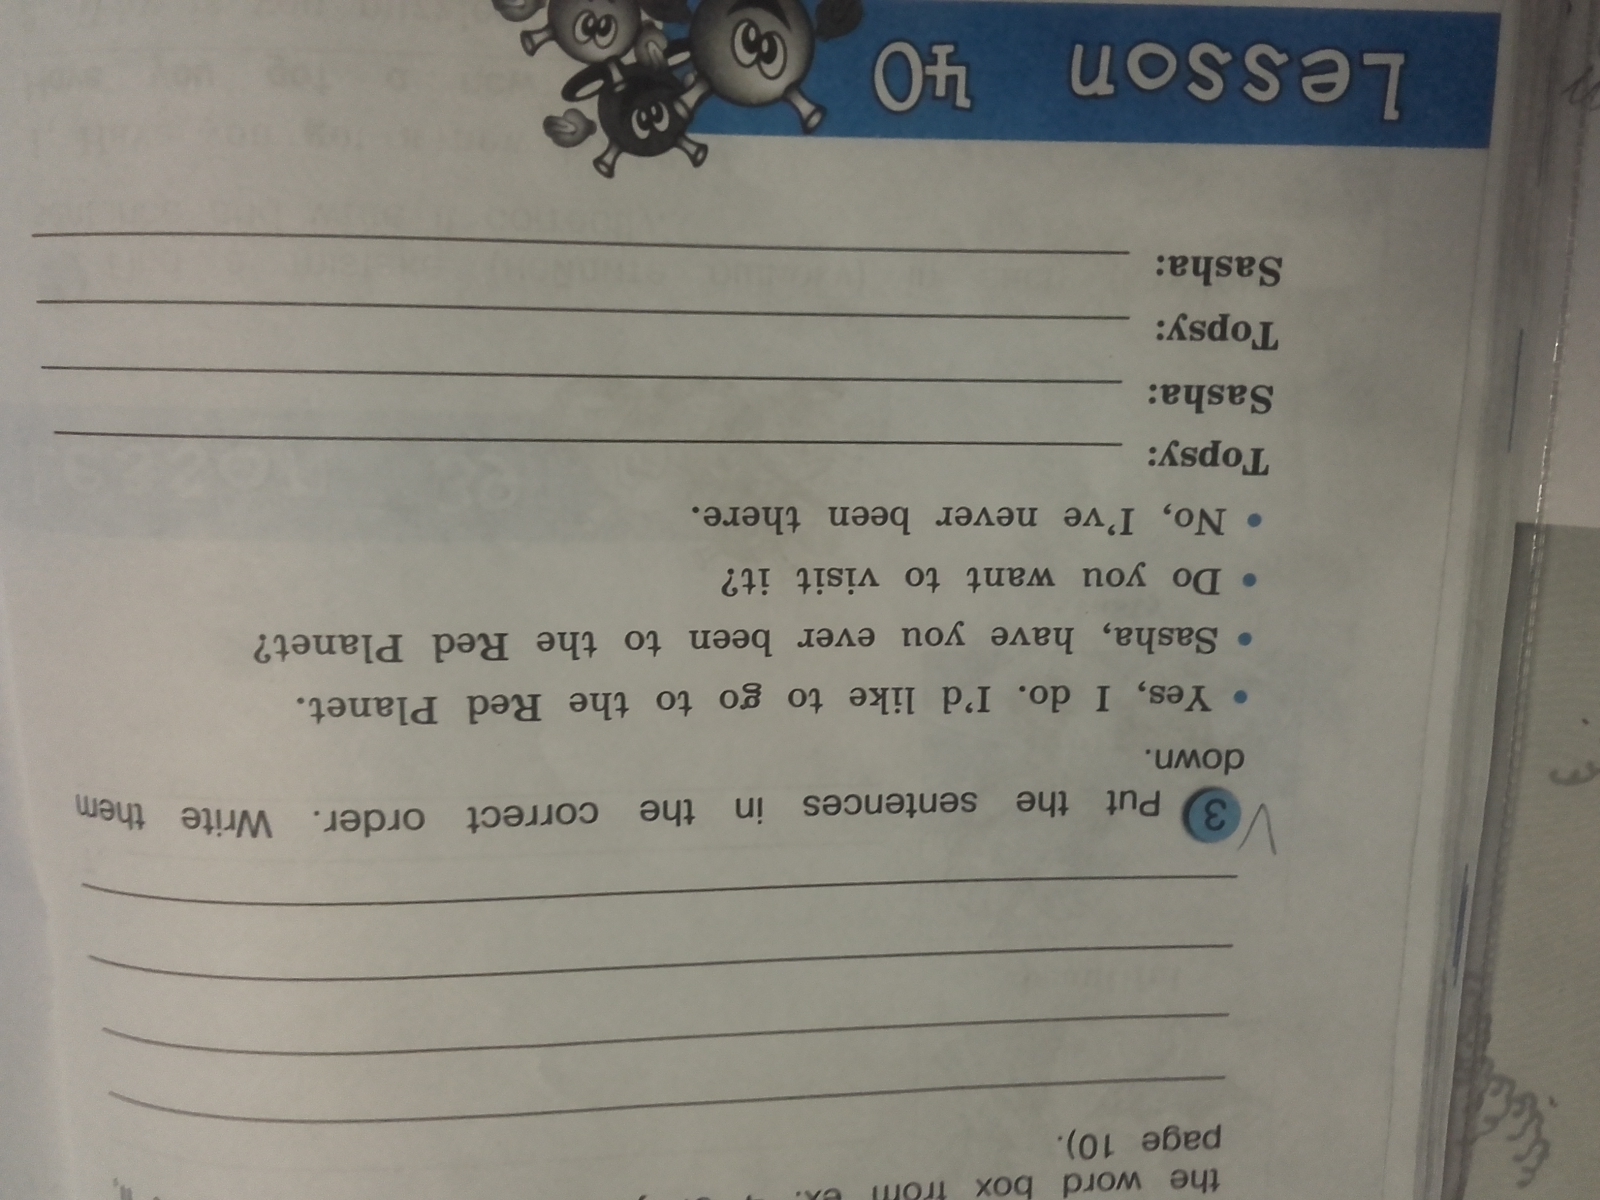 the word box from ex.
page 10).
3 Put the sentences in the correct order. Write them
down.
• Yes, I do. I'd like to go to the Red Planet.
• Sasha, have you ever been to the Red Planet?
• Do you want to visit it?
• No, I've never been there.
Topsy:
Sasha:
Topsy:
Sasha:
Lesson 40